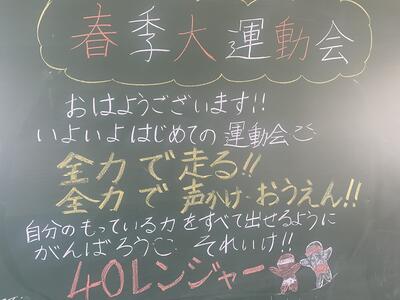 春季大運動会
おはようございます!!
いよいよはじめての運動会で
全力で走る!!
全力で声かけ・おうえん!!
自分のもっている力をすべて出せるように
がんばろう それいけ!!
40レンジャー